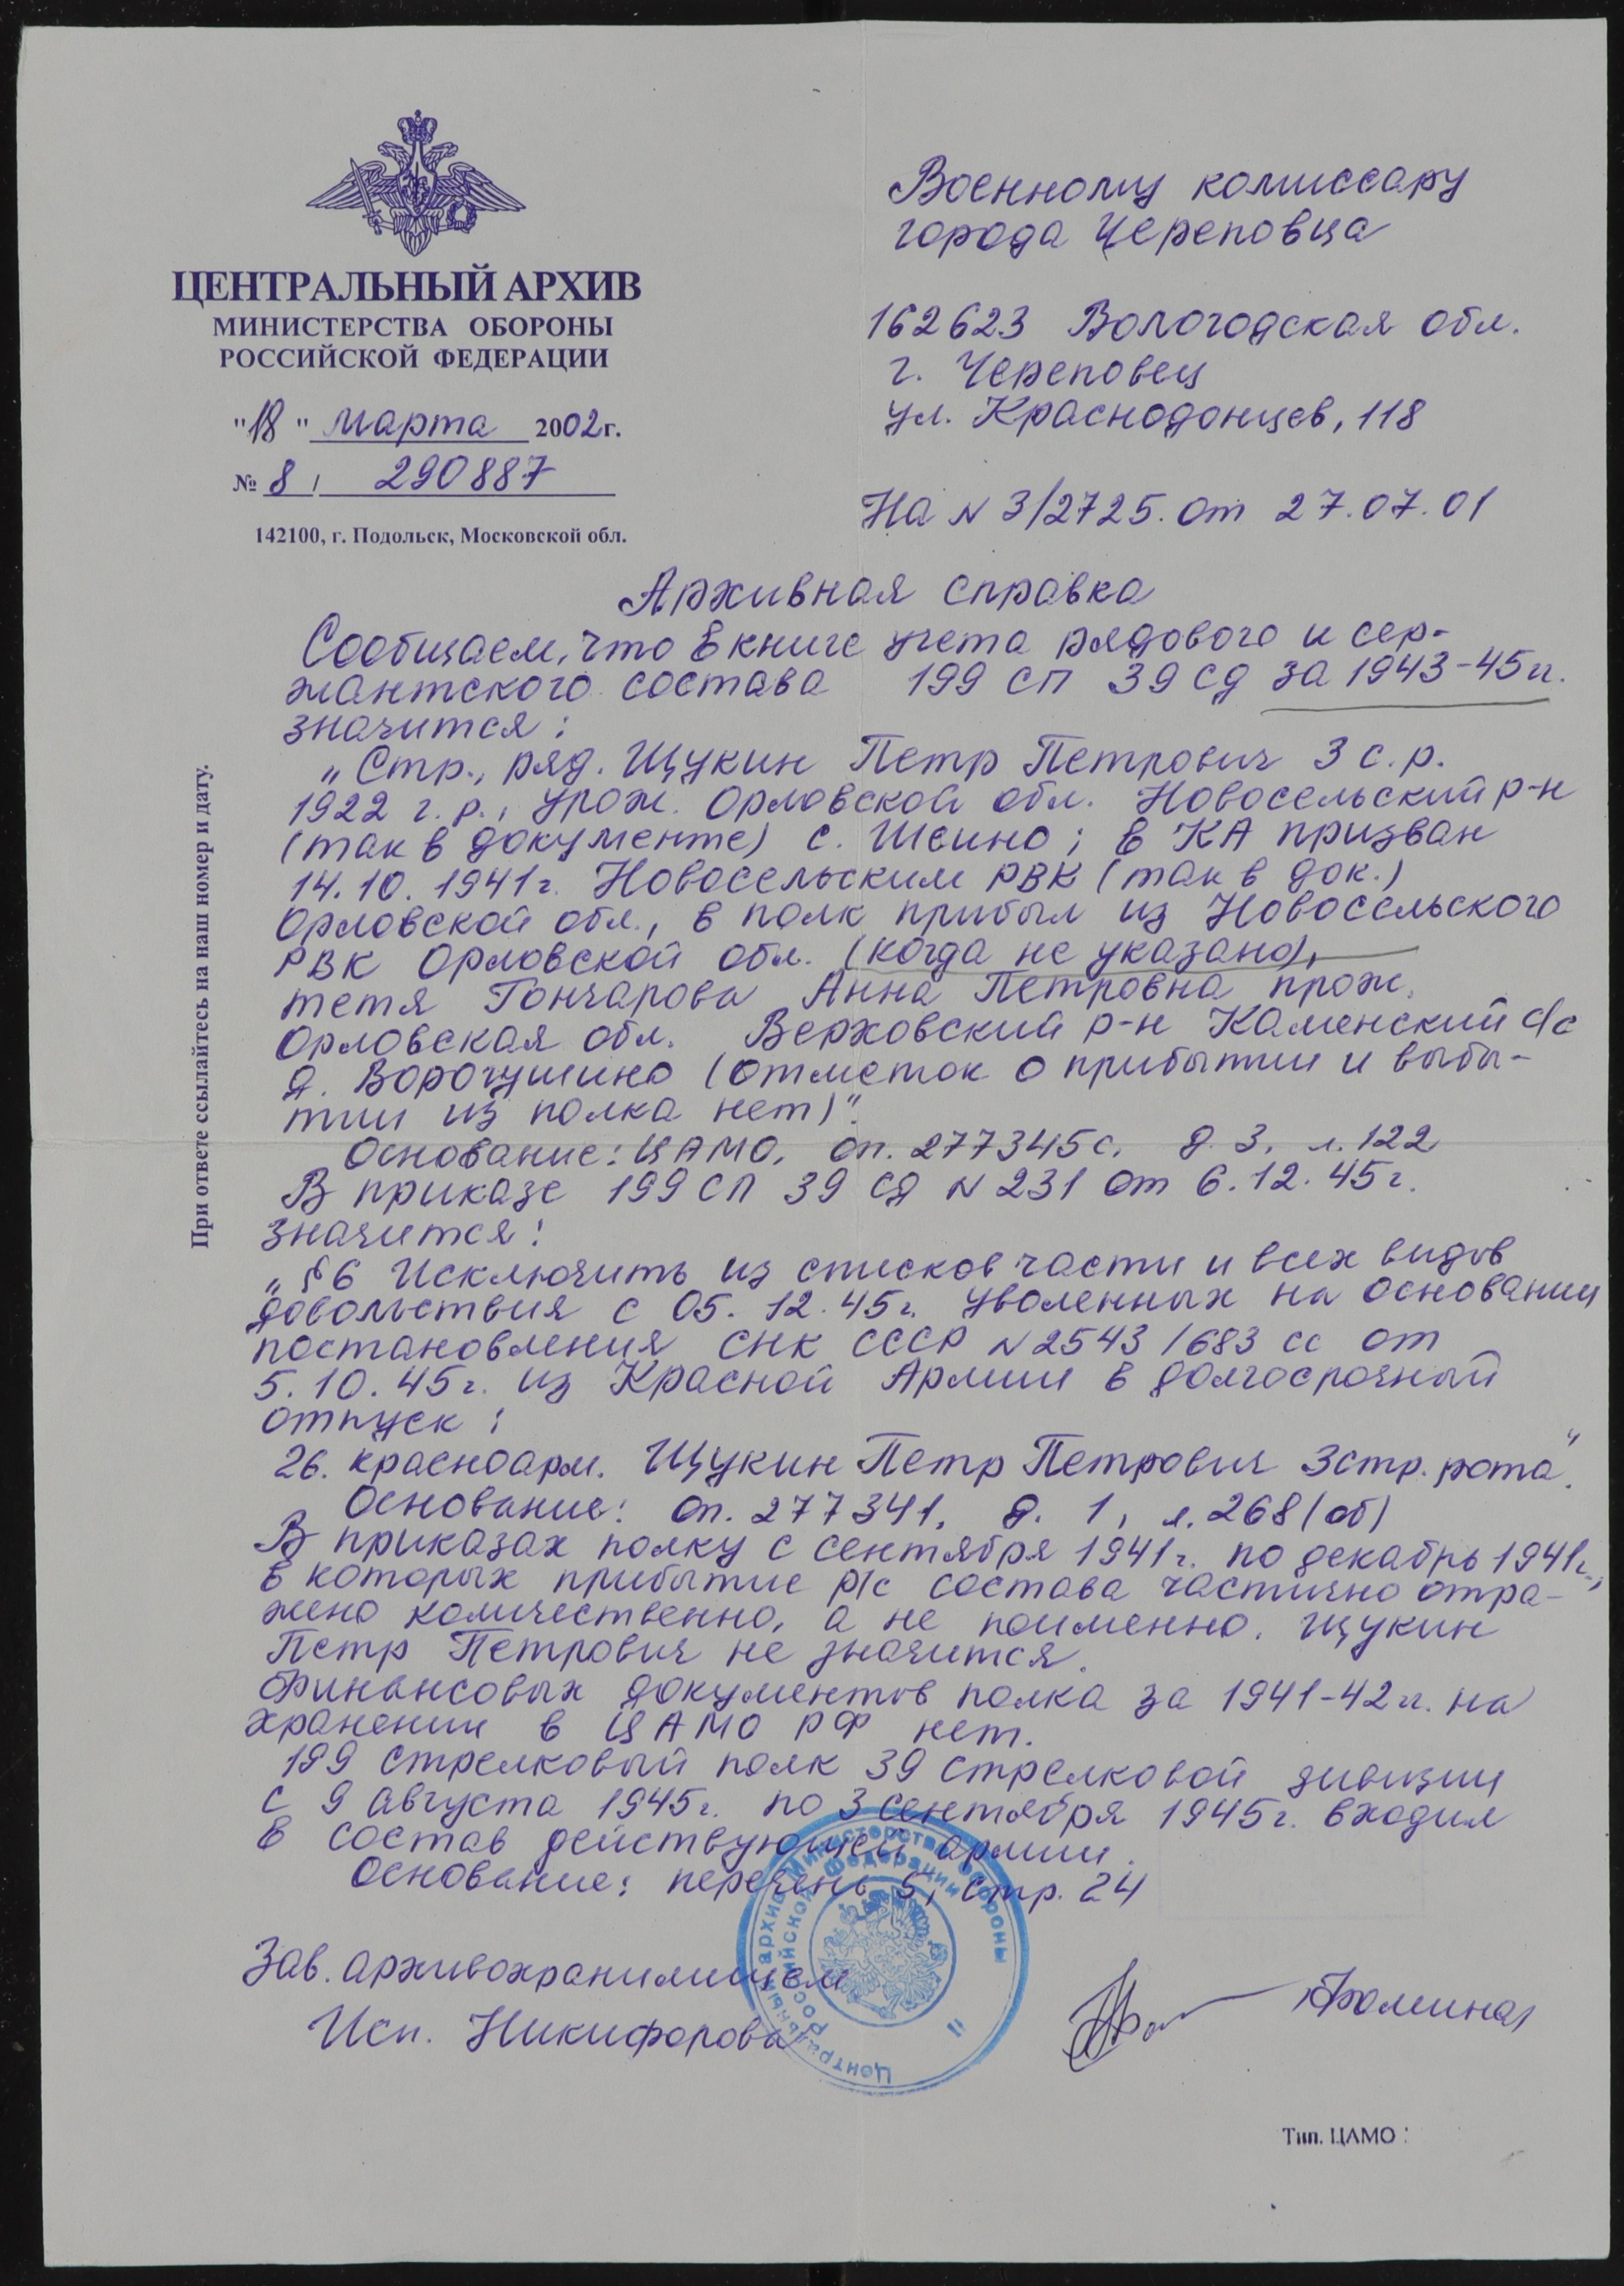 ЦЕНТРАЛЬНЫЙ АРХИВ
МИНИСТЕРСТВА ОБОРОНЫ
РОССИЙСКОЙ ФЕДЕРАЦИИ
"18" марта 2002 г.
№ 8 / 290887
142100, г. Подольск, Московской обл.
Военному комиссару
города Череповца
162623 Вологодская обл.
г. Череповец
ул. Краснодонцев, 118
На N 3/2725. от 27.07.01
Архивная справка
Сообщаем, что в книге учета рядового и сер-
жантского состава 199 СП 39 сд за 1943-45 гг.
значится:
„Стр., ряд. Щукин Петр Петрович 3 с.р.
1922 г.р., урож. Орловской обл. Новосельский р-н
(так в документе) с. Шеино; в КА призван
14.10.1941г. Новосельским РВК (так в док.)
Орловской обл., в полк прибыл из Новосельского
РВК Орловской обл. (когда не указано),
тетя Гончарова Анна Петровна прож.
Орловская обл. Верховский р-н Каменский с/с
д. Ворогушино (отметок о прибытии и выбы-
тии из полка нет)".
Основание: ЦАМО, оп. 277345с, д. 3, л. 122
В приказе 199 СП 39 сд N 231 от 6.12.45г.
значится:
„§6 Исключить из списков части и всех видов
довольствия с 05.12.45г. уволенных на основании
постановления СНК СССР N 2543/683 сс от
5.10.45г. из Красной Армии в долгосрочный
отпуск:
26. красноарм. Щукин Петр Петрович 3 стр. рота".
Основание: оп. 277341, д. 1, л. 268 (об)
В приказах полку с сентября 1941г. по декабрь 1941г.,
в которых прибытие р/с состава частично отра-
жено количественно, а не поименно. Щукин
Петр Петрович не значится.
Финансовых документов полка за 1941-42 гг. на
хранении в ЦАМО РФ нет.
199 стрелковый полк 39 стрелковой дивизии
с 9 августа 1945г. по 3 сентября 1945г. входил
в состав действующей армии.
Основание: перечень 5, стр. 24
Зав. архивохранилищем
Фомина
Исп. Никифорова
Центральный архив Министерства обороны
Российской Федерации
Тип. ЦАМО
При ответе ссылайтесь на наш номер и дату.